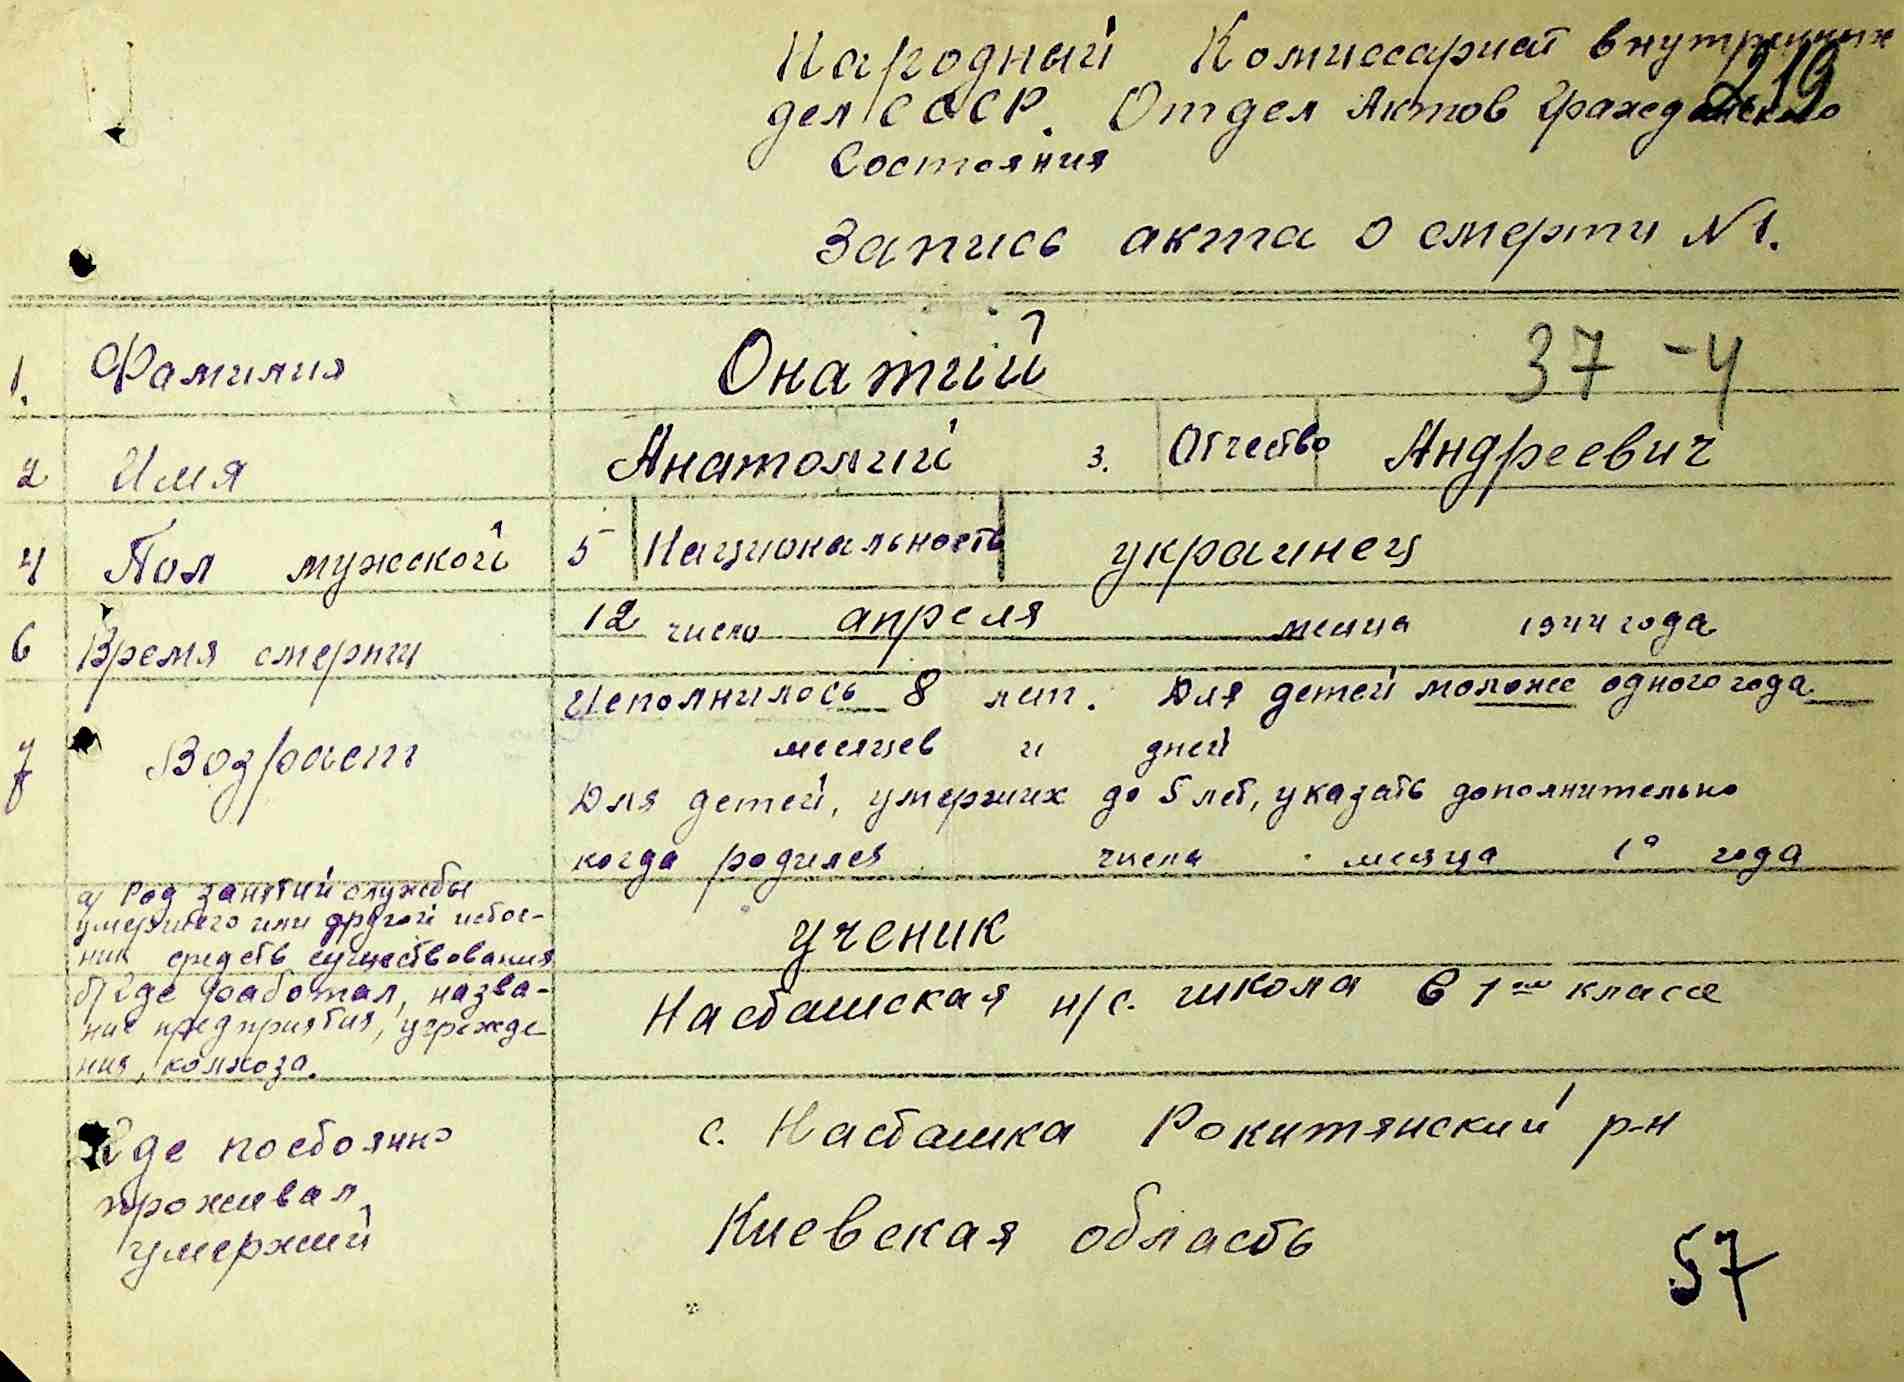 Народный Комиссариат внутренних
219
дел СССР. Отдел Актов Гражданского
Состояния
Запись акта о смерти N 1.
1. Фамилия Онатий 37-4
2 Имя Анатолий 3. Отчество Андреевич
4 Пол мужской 5 Национальность украинец
6 Время смерти 12 число апреля месяца 1944 года
Исполнилось 8 лет. Для детей моложе одного года
7 Возраст месяцев и дней
Для детей, умерших до 5 лет, указать дополнительно
когда родился числа месяца 1 года
а) Род занятий службы
умершего или другой источ-
ник средств существования
ученик
б) Где работал, назва-
ние предприятия, учрежде
ния, колхоза.
Насташская н/с. школа в 1ом классе
Где постоянно
проживал
умерший
с. Насташка Рокитянский р-н
Киевская область
57